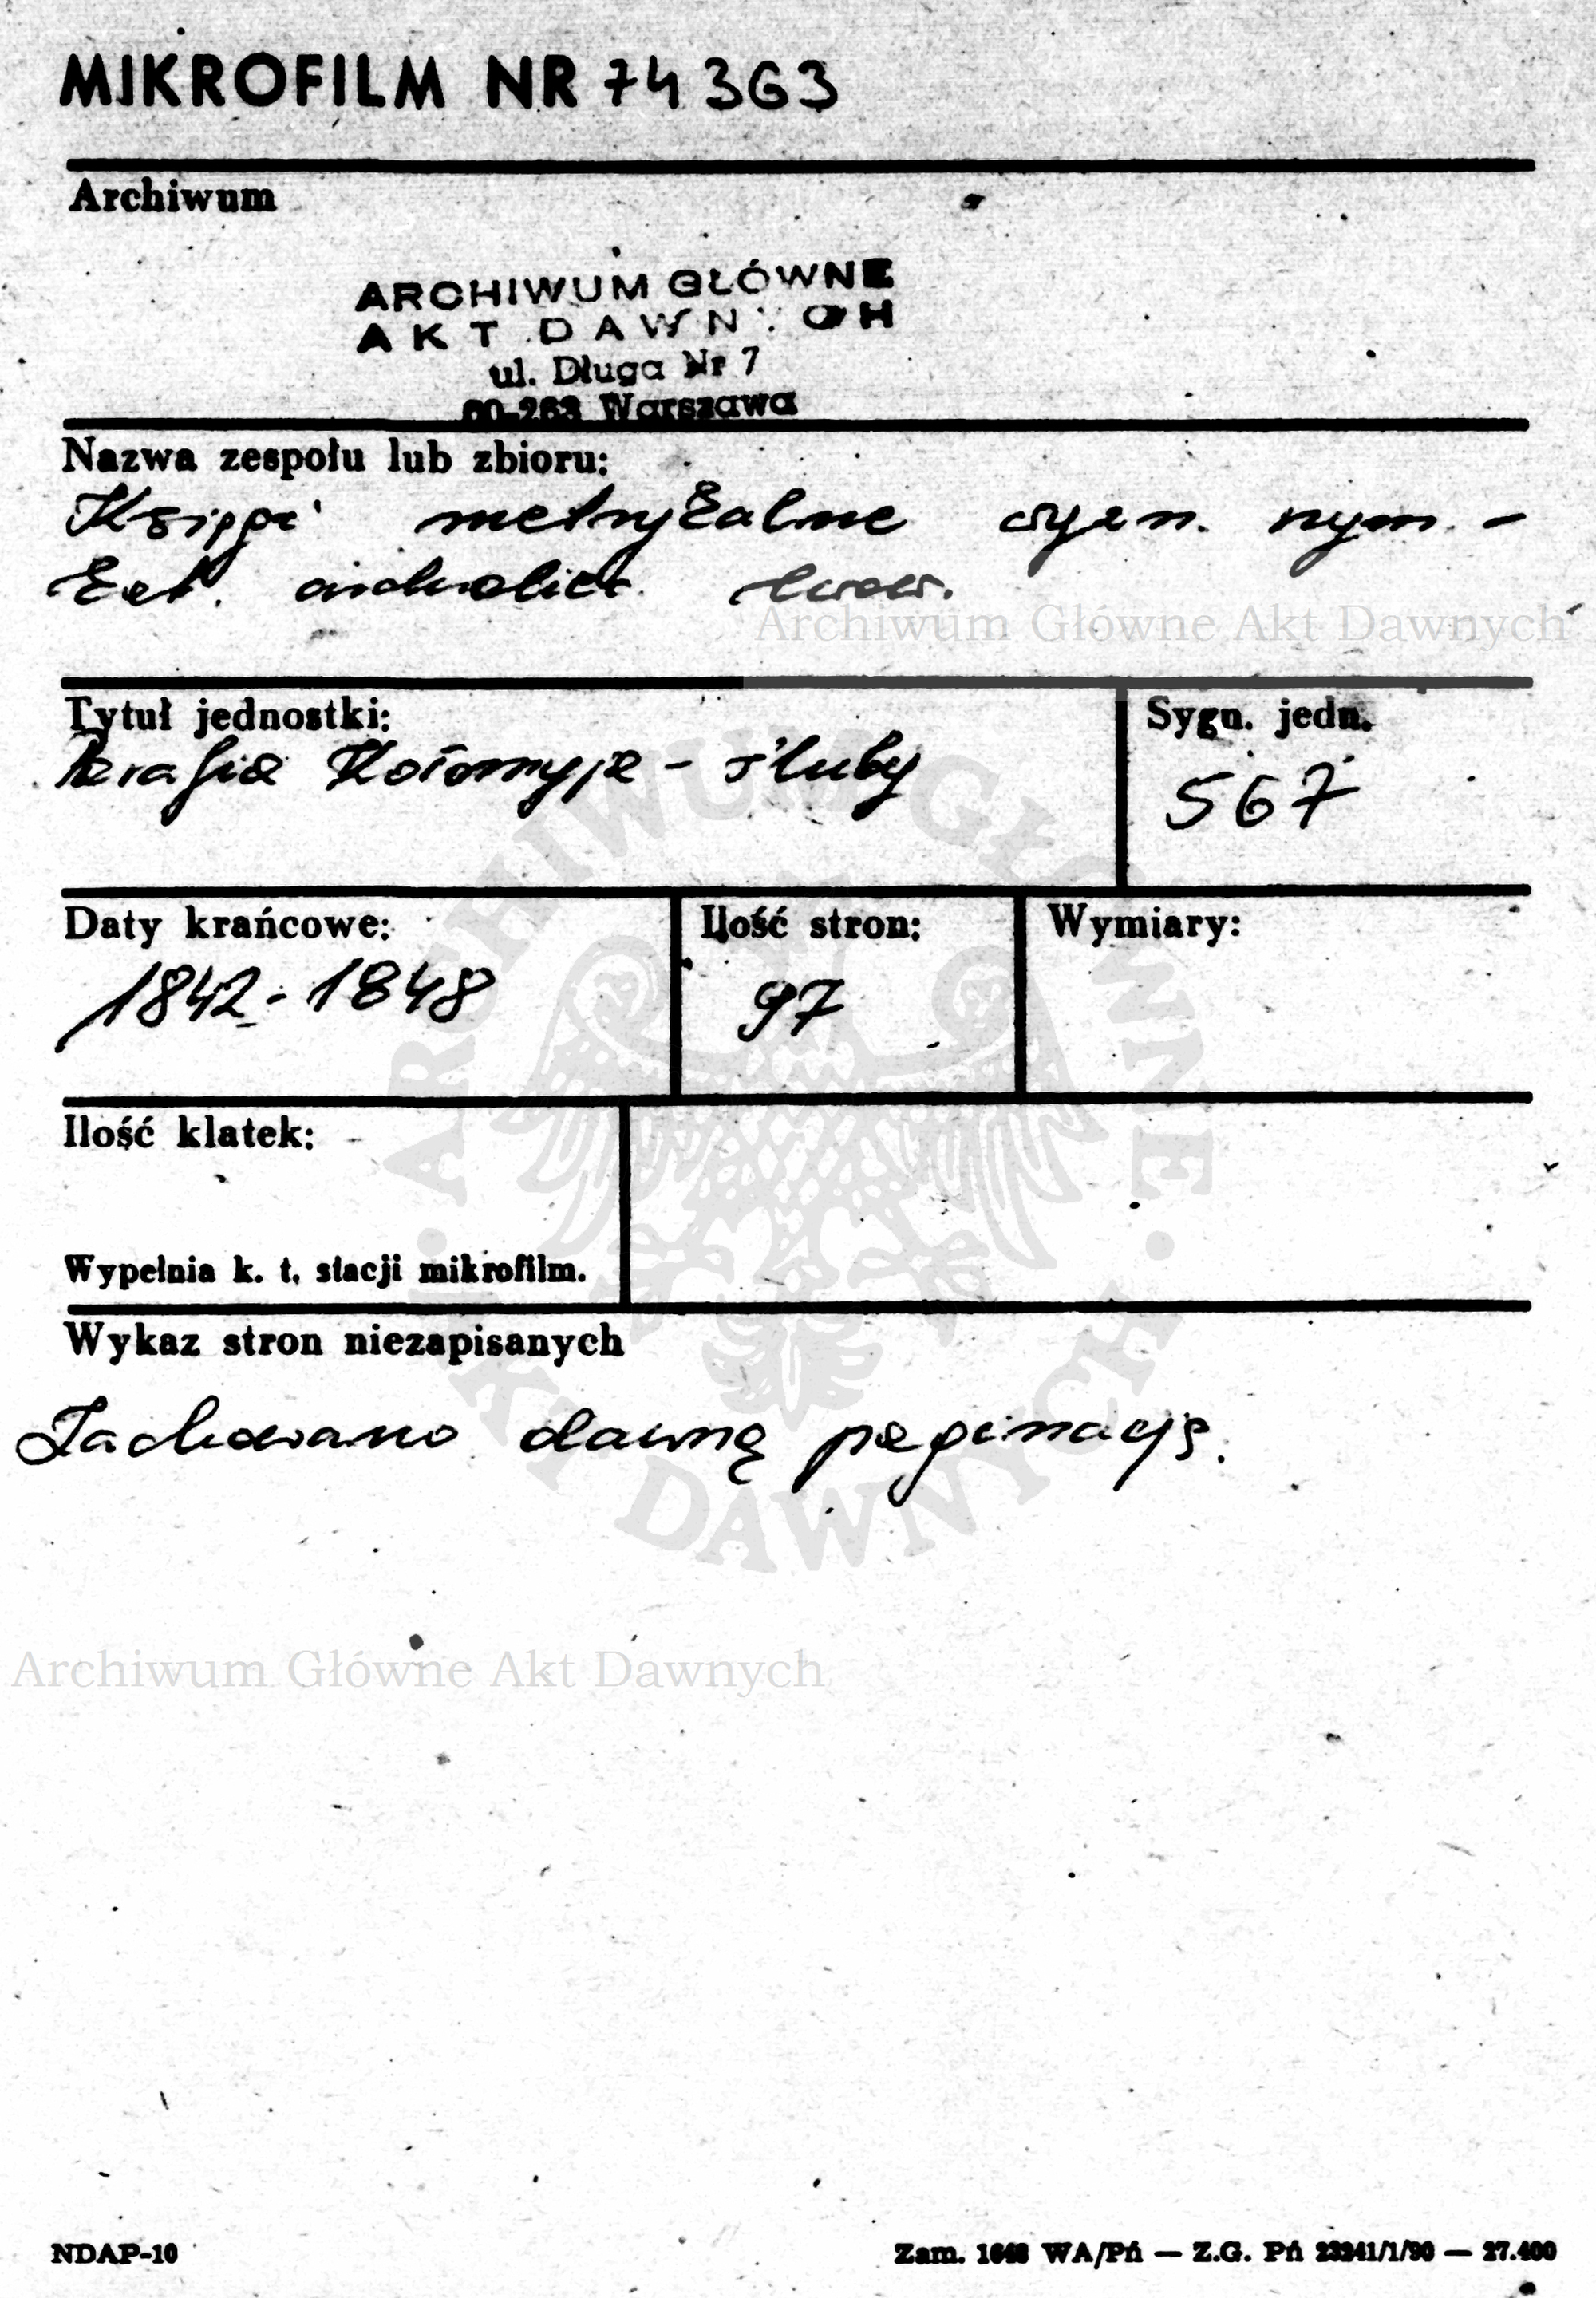 MIKROFILM NR 74 363
Archiwum
ARCHIWUM GŁÓWNE
AKT DAWNYCH
ul. Długa Nr 7
00-263 Warszawa
Nazwa zespołu lub zbioru:
Księgi metrykalne rym. -
kat. lwow.
Archiwum Główne Akt Dawnych
Tytuł jednostki:
Parafia Kołomyja - śluby
Sygn. jedn.
567
Daty krańcowe:
1842 - 1848
Ilość stron:
97
Wymiary:
Ilość klatek:
Wypełnia k. t. stacji mikrofilm.
Wykaz stron niezapisanych
Zachowano dawną paginację.
ARCHIWUM GŁÓWNE · AKT DAWNYCH ·
Archiwum Główne Akt Dawnych
NDAP-10
Zam. 1648 WA/Pń — Z.G. Pń 23241/1/90 — 27.400